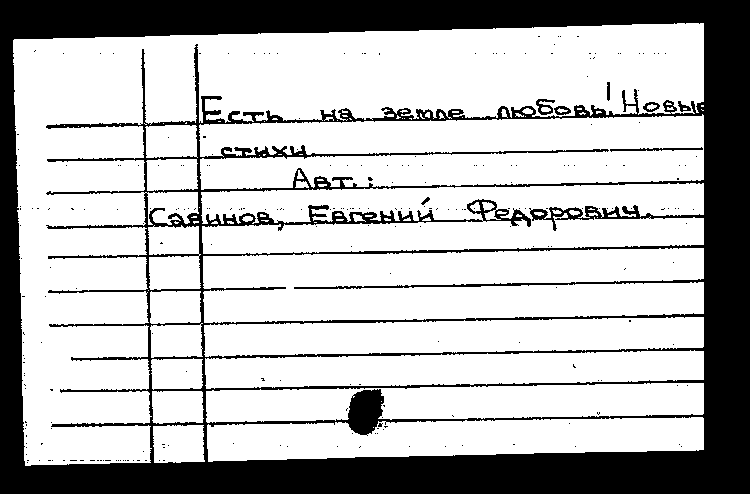 Есть на земле любовь! Новые
стихи.
Авт.:
Савинов, Евгений Федорович.